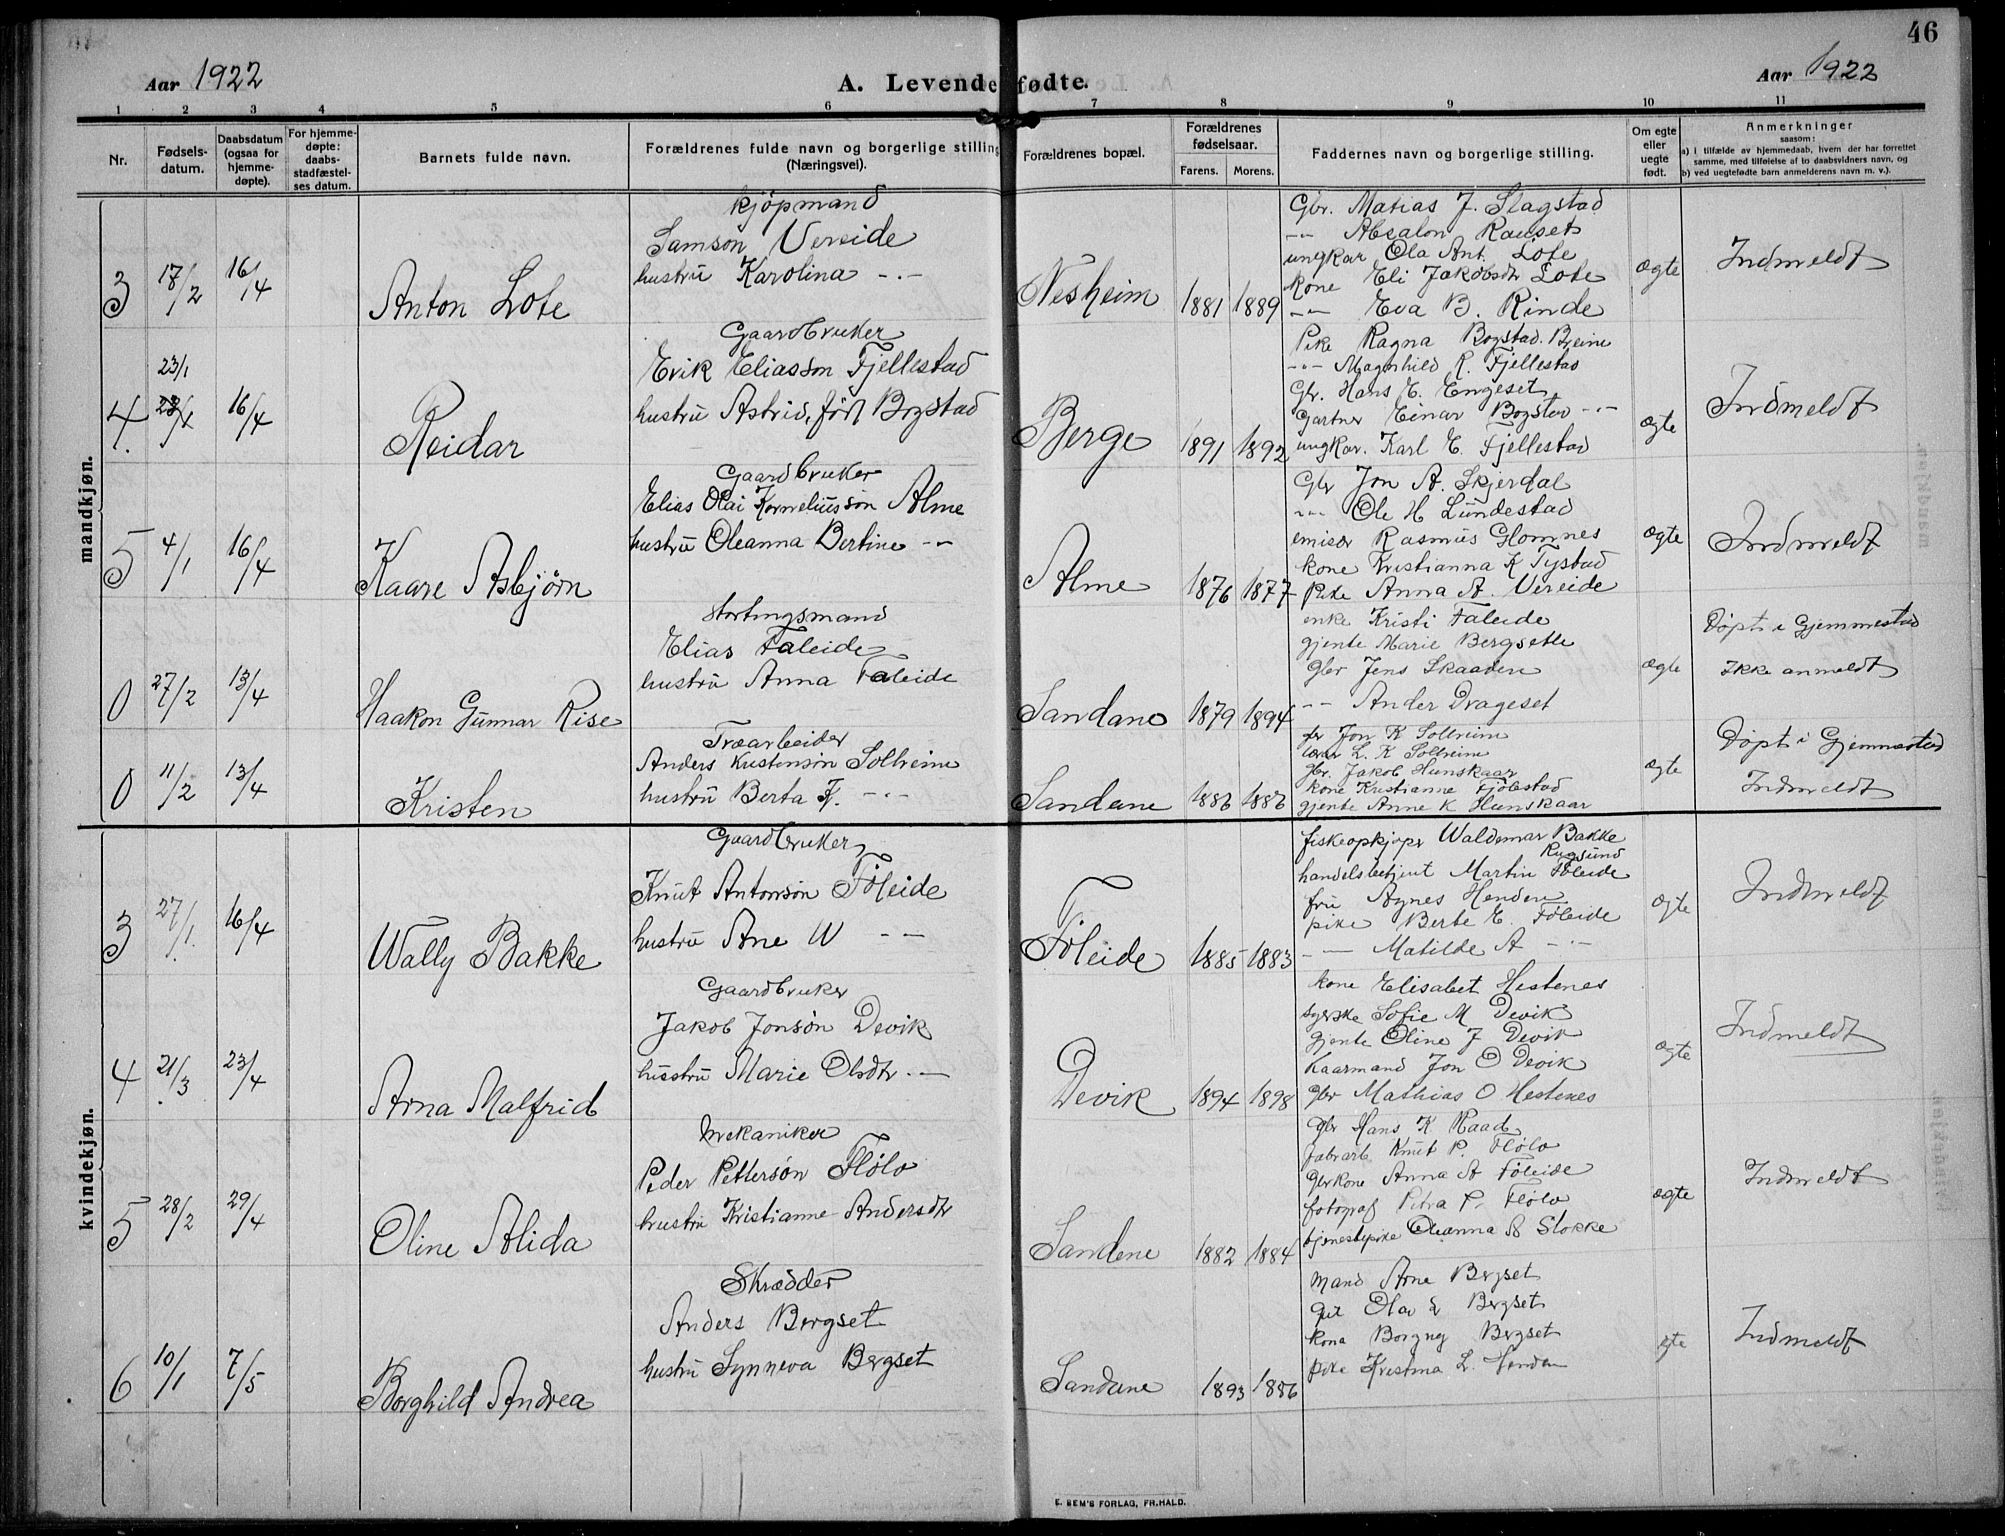 46
Aar 1922
A. Levendefødte.
Aar 1922
1 2 3 4 5 6 7 8 9 10 11
Nr.
Fødsels-
datum.
Daabsdatum
(ogsaa for
hjemme-
døpte).
For hjemme-
døpte:
daabs-
stadfæstel-
ses datum.
Barnets fulde navn.
Forældrenes fulde navn og borgerlige stilling
(Næringsvei).
Forældrenes bopæl.
Forældrenes
fødselsaar.
Farens. Morens.
Faddernes navn og borgerlige stilling.
Om egte
eller
uegte
født.
Anmerkninger
saasom:
a) i tilfælde av hjemmedaab, hvem der har forrettet
samme, med tilføielse af to daabsvidners navn, og
b) ved uegtefødte barn anmelderens navn m. v.).
mandkjøn.
3 17/2 16/4 Anton Lote
kjøpmand
Samson Vereide
hustru Karolina -"-
Nesheim 1881 1889
Gbr. Matias J. Slagstad
-"- Absalon Rauset
ungkar Ola Ant. Lote
kone Eli Jakobsdtr Lote
-"- Eva B. Rinde
ægte
Indmeldt
4. 23/1 16/4 Reidar
Gaardbruker
Erik Eliasson Fjellestad
hustru Astrid, født Bogstad
Berge 1891 1892
Pike Ragna Bogstad. Bjeine
-"- Magnhild R. Fjellestad
Gbr. Hans E. Engeset
Gartner Einar Bogstad -"-
ungkar. Karl E. Fjellestad
ægte
Indmeldt
5 4/1 16/4 Kaare Asbjørn
Gaardbruker
Elias Olai Korneliussøn Alme
hustru Oleanna Bertine -"-
Alme 1876 1877
Gbr Jon A. Skjerdal
-"- Ole H Lundestad
emisær Rasmus Glomnes
kone Kristianna K Tystad
Pike Anna A. Vereide
ægte
Indmeldt
0 27/2 13/4 Haakon Gunnar Rise
stortingsmand
Elias Faleide
hustru Anna Faleide
Sandane 1879 1894
enke Kristi Faleide
gjente Marie Bergsette
gbr Jens Skaaden
-"- Ander Drageset
ægte
Døpt i Gjemmestad
Ikke anmeldt
0 11/2 13/4 Kristen
Træarbeider
Anders Kristensøn Solheim
hustru Berta K. -"-
Sandane 1886 1886
Jon K Solheim
lærer L. K Solheim
gbr. Jakob Hunskaar
kone Kristianne Fjølestad
gjente Anne K Hunskaar
ægte
Døpt i Gjemmestad
Indmeldt
kvindekjøn.
3 27/1. 16/4 Wally Bakke
Gaardbruker
Knut Antonsøn Föleide
hustru Ane W -"-
Föleide 1885 1883
fiskeopkjøper Waldemar Bakke
Rugsund
handelsbetjent Martin Föleide
fru Agnes Henden
pike Berte E. Föleide
-"- Matilde A -"-
ægte
Indmeldt
4 21/3 23/4 Arna Malfrid
Gaardbruker
Jakob Jonsøn Devik
hustru Marie Olsdtr. -"-
Devik 1894 1898
kone Elisabet Hestenes
syerske Sofie M Devik
gjente Oline J Devik
Kaarmand Jon O Devik
gbr Mathias O Hestenes
ægte
Indmeldt
5 28/2 29/4 Oline Alida
Mekaniker
Peder Pettersøn Flölo
hustru Kristianne Andersdtr
Sandene 1882 1884
gbr Hans K Raad
fabrarb Knut P. Flölo
gbrkone Anna A Föleide
fotograf Petra P. Flölo
tjenestepike Oleanna Stokke
ægte
Indmeldt
6 10/1 7/5 Borghild Andrea
Skrædder
Anders Bergset
hustru Synneva Bergset
Sandane 1893 1886
Mand Arne Bergset
Olav Bergset
kona Borgny Bergset
pike Kristina L. Henden
ægte
Indmeldt
E. SEM'S FORLAG, FR.HALD.